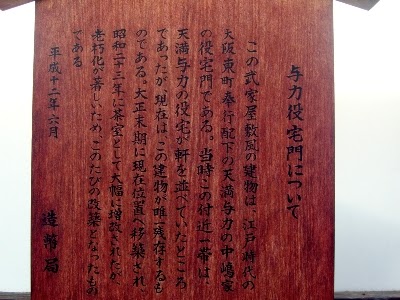 与力役宅門について
この武家屋敷風の建物は、江戸時代の
大阪東町奉行配下の天満与力の中嶋家
の役宅門である。当時この付近一帯は、
天満与力の役宅が軒を並べていたところ
であったが、現在は、この建物が唯一残存するも
のである。大正末期に現在位置へ移築され、
昭和二十三年に茶室として大幅に増改されたが、
老朽化が著しいため、このたびの改築となったもの
である
平成十二年六月
造幣局